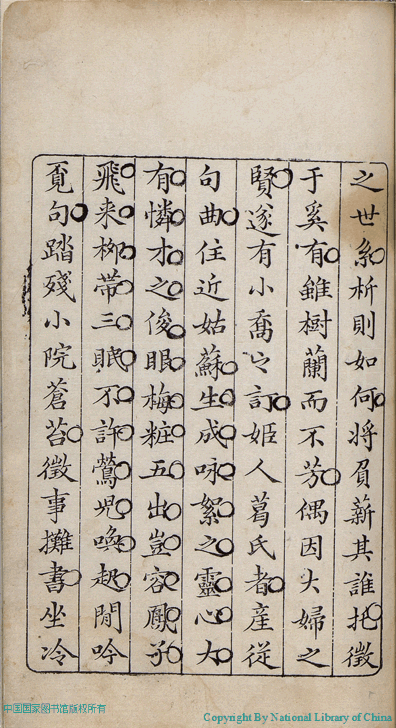 之世系析則如何將負薪其誰托徵
于奚有雖樹蘭而不芳偶因大婦之
賢遂有小喬之訂姬人葛氏者產從
句曲住近姑蘇生成咏絮之靈心大
有憐才之俊眼梅粧五出豈容厭子
飛来柳帶三眠不許鶯児喚起閒吟
覓句踏殘小院蒼苔徵事攤書坐冷
中国国家图书馆版权所有
Copyright By National Library of China